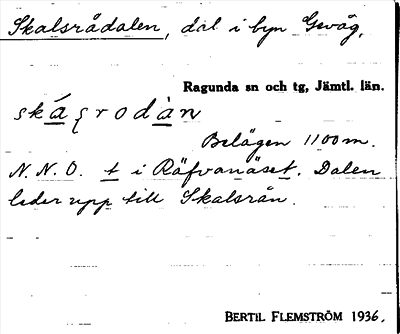 Skalsrådalen, dal i byn Gevåg,
Ragunda sn och tg, Jämtl. län.
skáʂrodàn
Belägen 1100 m.
N.N.O. t i Räfvanäset. Dalen
leder upp till Skalsrån.
BERTIL FLEMSTRÖM 1936.